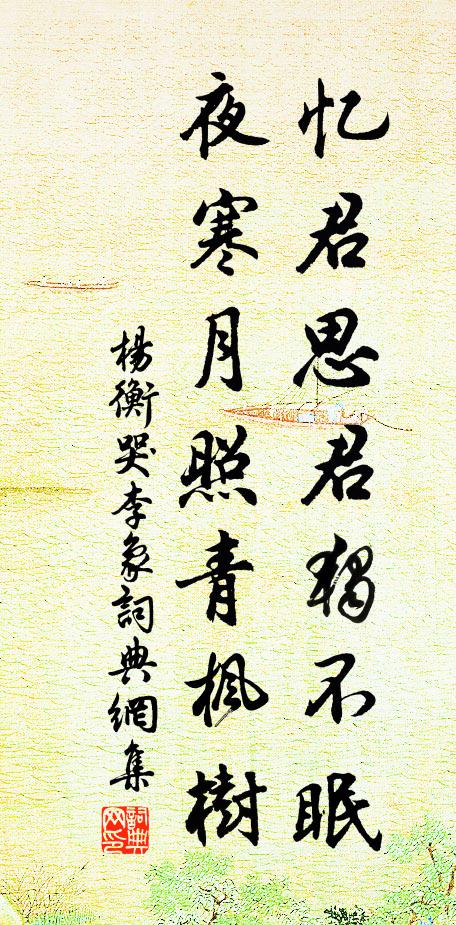 忆君思君独不眠
夜寒月照青枫樹
楊衡哭李象詞典網集
詞典网印